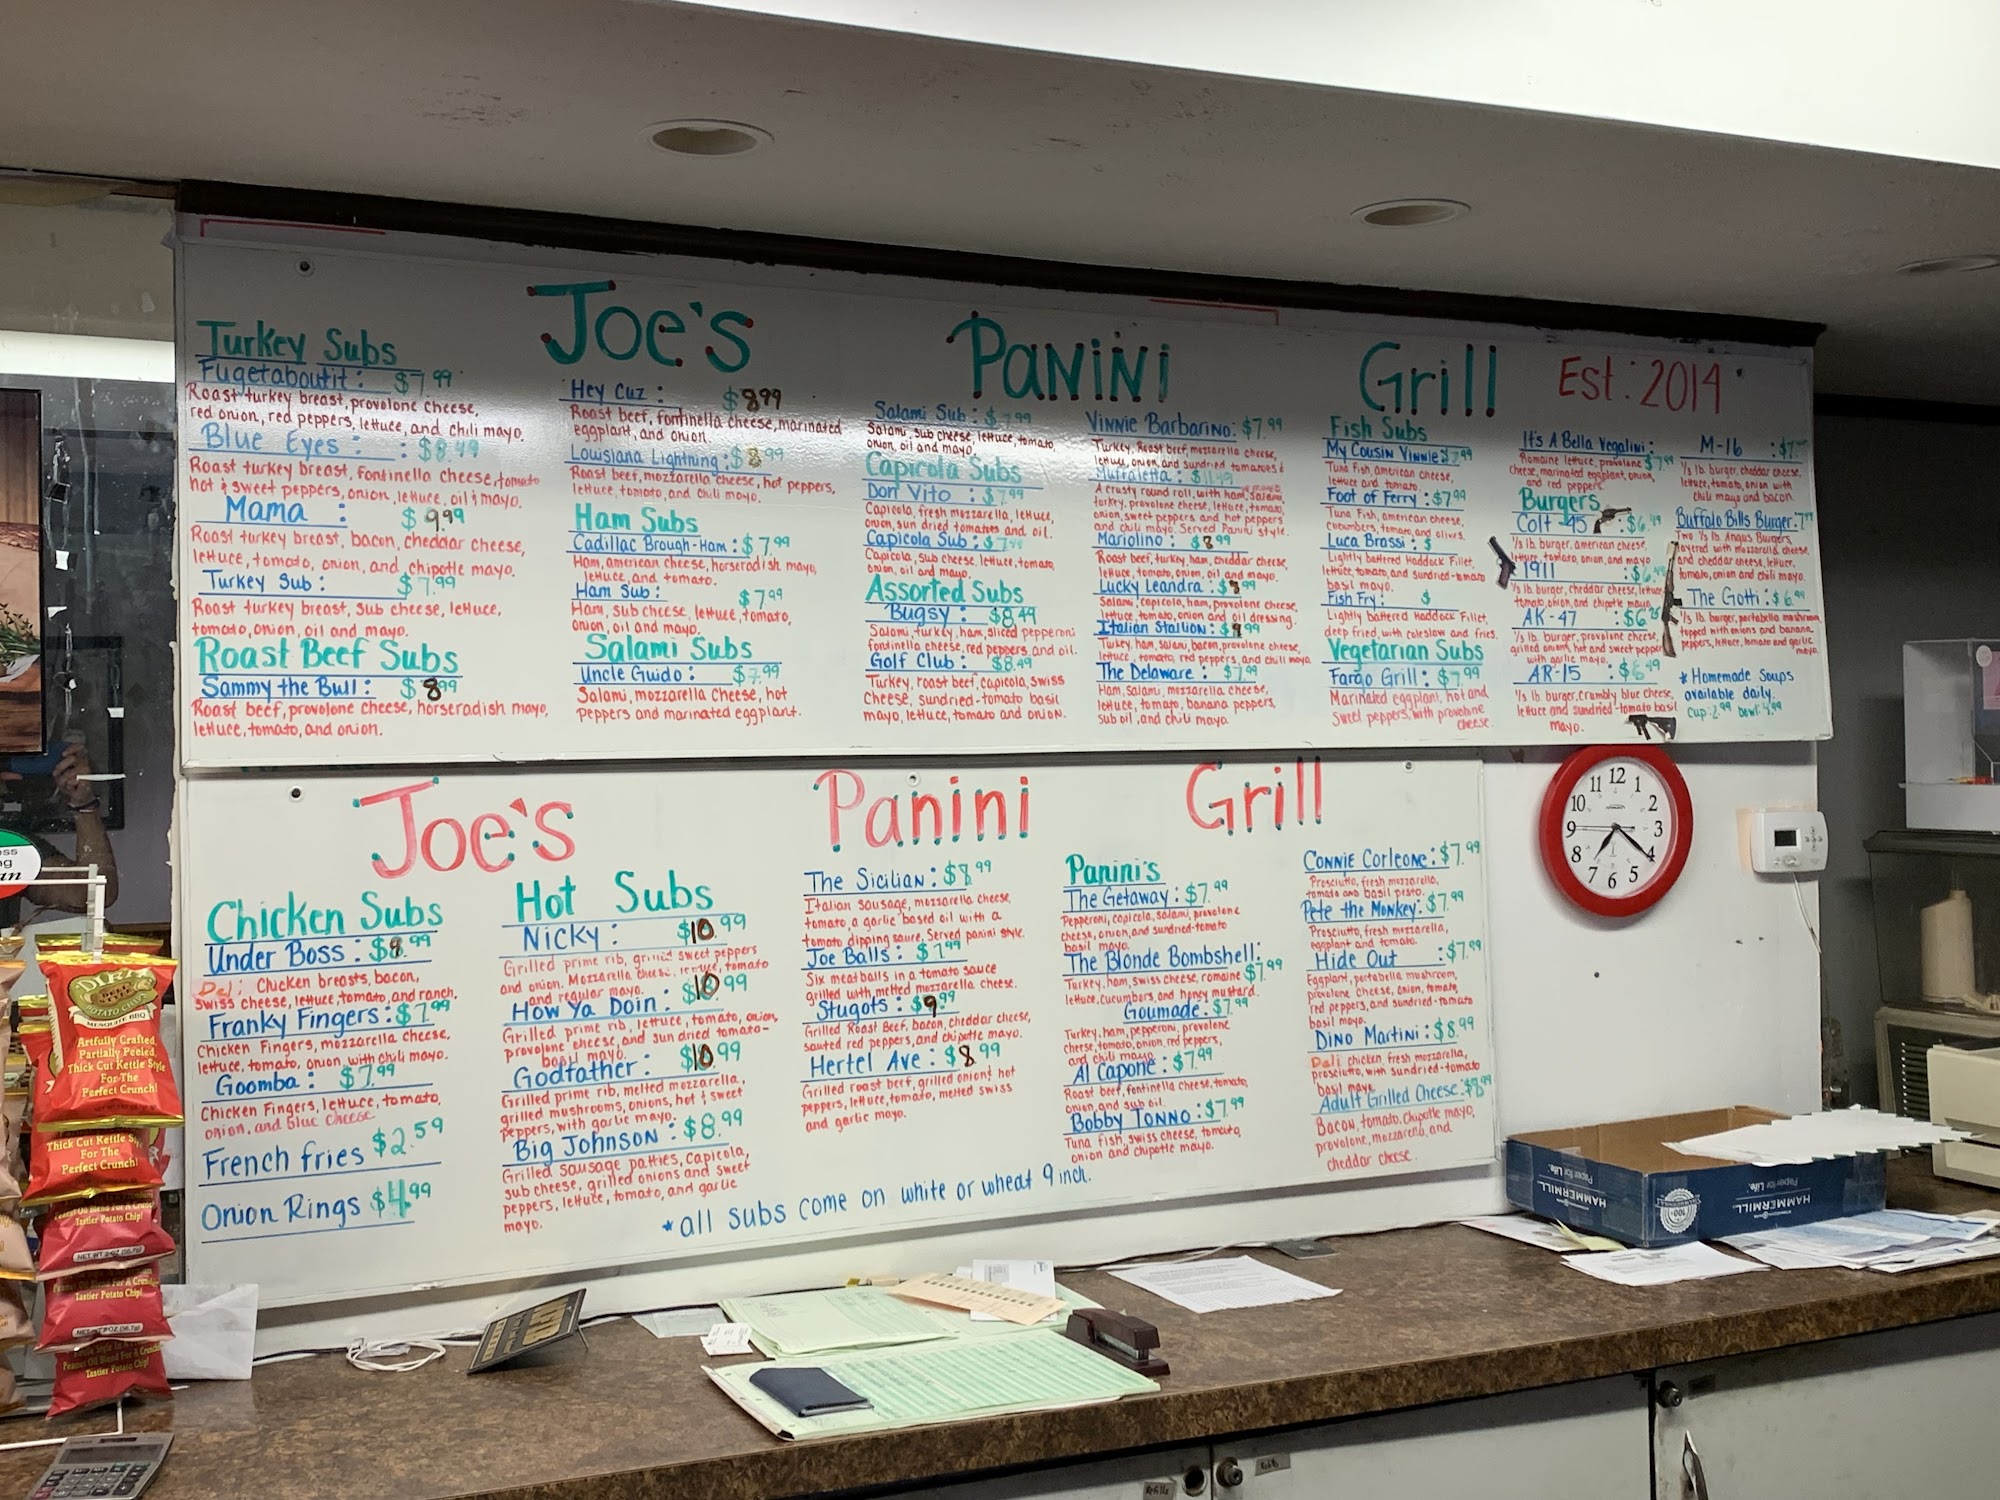 Joe's Panini Grill Est: 2014
Turkey Subs
Fugetaboutit: $7.99
Roast turkey breast, provolone cheese,
red onion, red peppers, lettuce, and chili mayo.
Blue Eyes: $8.49
Roast turkey breast, fontinella cheese, tomato
hot & sweet peppers, onion, lettuce, oil & mayo.
Mama: $9.99
Roast turkey breast, bacon, cheddar cheese,
lettuce, tomato, onion, and chipotle mayo.
Turkey Sub: $7.99
Roast turkey breast, sub cheese, lettuce,
tomato, onion, oil and mayo.
Roast Beef Subs
Sammy the Bull: $8.99
Roast beef, provolone cheese, horseradish mayo,
lettuce, tomato, and onion.
Hey Cuz: $8.99
Roast beef, fontinella cheese, marinated
eggplant, and onion.
Louisiana Lightning: $8.99
Roast beef, mozzarella cheese, hot peppers,
lettuce, tomato, and chili mayo.
Ham Subs
Cadillac Brough-Ham: $7.99
Ham, american cheese, horseradish mayo,
lettuce, and tomato.
Ham Sub: $7.99
Ham, sub cheese, lettuce, tomato,
onion, oil and mayo.
Salami Subs
Uncle Guido: $7.99
Salami, mozzarella cheese, hot
peppers and marinated eggplant.
Salami Sub: $7.99
Salami, sub cheese, lettuce, tomato,
onion, oil and mayo.
Capicola Subs
Don Vito: $7.99
Capicola, fresh mozzarella, lettuce,
onion, sun dried tomatoes and oil.
Capicola Sub: $7.99
Capicola, sub cheese, lettuce, tomato,
onion, oil and mayo.
Assorted Subs
Bugsy: $8.49
Salami, turkey, ham, sliced pepperoni
fontinella cheese, red peppers, and oil.
Golf Club: $8.49
Turkey, roast beef, capicola, swiss
cheese, sundried-tomato basil
mayo, lettuce, tomato and onion.
Vinnie Barbarino: $7.99
Turkey, Roast beef, mozzarella cheese,
lettuce, onion, and sundried tomatoes
Muffaletta: $11.49
A crusty round roll, with ham, salami,
turkey, provolone cheese, lettuce, tomato,
onion, sweet peppers and hot peppers
and chili mayo. Served Panini style.
Mariolino: $8.99
Roast beef, turkey, ham, cheddar cheese,
lettuce, tomato, onion, oil, and mayo.
Lucky Leandra: $8.99
Salami, capicola, ham, provolone cheese,
lettuce, tomato, onion and oil dressing.
Italian Stallion: $9.99
Turkey, ham, salami, bacon, provolone cheese,
lettuce, tomato, red peppers, and chili mayo.
The Delaware: $7.99
Ham, salami, mozzarella cheese,
lettuce, tomato, banana peppers,
sub oil, and chili mayo.
Fish Subs
My Cousin Vinnie: $7.99
Tuna Fish, american cheese,
lettuce and tomato.
Foot of Ferry: $7.99
Tuna Fish, american cheese,
cucumbers, tomato, and olives.
Luca Brassi: $
Lightly battered Haddock Fillet,
lettuce, tomato, and sundried-tomato
basil mayo.
Fish Fry: $
Lightly battered Haddock Fillet,
deep fried, with coleslaw and fries.
Vegetarian Subs
Fargo Grill: $7.99
Marinated eggplant, hot and
sweet peppers, with provolone
cheese.
It's A Bella Vegalini:
Romaine lettuce, provolone $7.99
cheese, marinated eggplant, onion,
and red peppers.
Burgers
Colt-45 $6.49
1/3 lb. burger, american cheese,
lettuce, tomato, onion, and mayo
1911 : $6.
1/3 lb. burger, cheddar cheese, lettuce
tomato, onion, and chipotle mayo
AK-47 : $6.
1/3 lb. burger, provolone cheese,
grilled onions, hot and sweet peppers
with garlic mayo.
AR-15 : $6.49
1/3 lb. burger, crumbly blue cheese,
lettuce and sundried-tomato basil
mayo.
M-16 : $7.
1/3 lb. burger, cheddar cheese,
lettuce, tomato, onion with
chili mayo and bacon.
Buffalo Bills Burger:
Two 1/3 lb. Angus Burgers,
layered with mozzarella cheese,
and cheddar cheese, lettuce,
tomato, onion and chili mayo.
The Gotti: $6.99
1/3 lb. burger, portabella mushroom
topped with onions and banana
peppers, lettuce, tomato and garlic
mayo.
* Homemade Soups
available daily.
Cup: 2.99 bowl: 4.99
Joe's Panini Grill
Chicken Subs
Under Boss: $8.99
Deli: Chicken breasts, bacon,
swiss cheese, lettuce, tomato, and ranch.
Franky Fingers: $7.99
Chicken Fingers, mozzarella cheese,
lettuce, tomato, onion with chili mayo.
Goomba: $7.99
Chicken Fingers, lettuce, tomato,
onion, and blue cheese
French fries $2.59
Onion Rings $4.99
Hot Subs
Nicky: $10.99
Grilled prime rib, grilled sweet peppers
and onion. Mozzarella cheese, lettuce, tomato
and regular mayo.
How Ya Doin: $10.99
Grilled prime rib, lettuce, tomato, onion,
provolone cheese, and sun dried tomato-
basil mayo.
Godfather: $10.99
Grilled prime rib, melted mozzarella,
grilled mushrooms, onions, hot & sweet
peppers, with garlic mayo.
Big Johnson: $8.99
Grilled sausage patties, capicola,
sub cheese, grilled onions and sweet
peppers, lettuce, tomato, and garlic
mayo.
The Sicilian: $8.99
Italian sausage, mozzarella cheese,
tomato, a garlic based oil with a
tomato dipping sauce. Served panini style.
Joe Balls: $7.99
Six meatballs in a tomato sauce
grilled with melted mozzarella cheese.
Stugots: $9.99
Grilled Roast Beef, bacon, cheddar cheese,
sauted red peppers, and chipotle mayo.
Hertel Ave: $8.99
Grilled roast beef, grilled onions hot
peppers, lettuce, tomato, melted swiss
and garlic mayo.
Panini's
The Getaway: $7.99
Pepperoni, capicola, salami, provolone
cheese, onion, and sundried-tomato
basil mayo.
The Blonde Bombshell:
Turkey, ham, swiss cheese, romaine $7.99
lettuce, cucumbers, and honey mustard.
Goumade: $7.99
Turkey, ham, pepperoni, provolone
cheese, tomato, onion, red peppers,
and chili mayo.
Al Capone: $7.99
Roast beef, fontinella cheese, tomato,
onion, and sub oil.
Bobby Tonno: $7.99
Tuna fish, swiss cheese, tomato,
onion and chipotle mayo.
Connie Corleone: $7.99
Prosciutto, fresh mozzarella,
tomato and basil pesto.
Pete the Monkey: $7.99
Prosciutto, fresh mozzarella,
eggplant and tomato.
Hide Out : $7.99
Eggplant, portabella mushroom,
provolone cheese, onion, tomato,
red peppers, and sundried-tomato
basil mayo.
Dino Martini: $8.99
Deli chicken, fresh mozzarella,
prosciutto, with sundried-tomato
basil mayo
Adult Grilled Cheese:
Bacon, tomato, chipotle mayo,
provolone, mozzarella, and
cheddar cheese.
*all subs come on white or wheat 9 inch.
12
1
2
3
4
5
6
7
8
9
10
11
DIRTY
POTATO CHIPS
MESQUITE BBQ
Artfully Crafted,
Partially Peeled,
Thick Cut Kettle Style
For The
Perfect Crunch!
Thick Cut Kettle
For The
Perfect Crunch!
Tastier Potato Chip!
NET WT 2 OZ (56.7g)
Tastier Potato Chip!
Tastier Potato Chip!
HAMMERMILL
Paper for Life.
HAMMERMILL